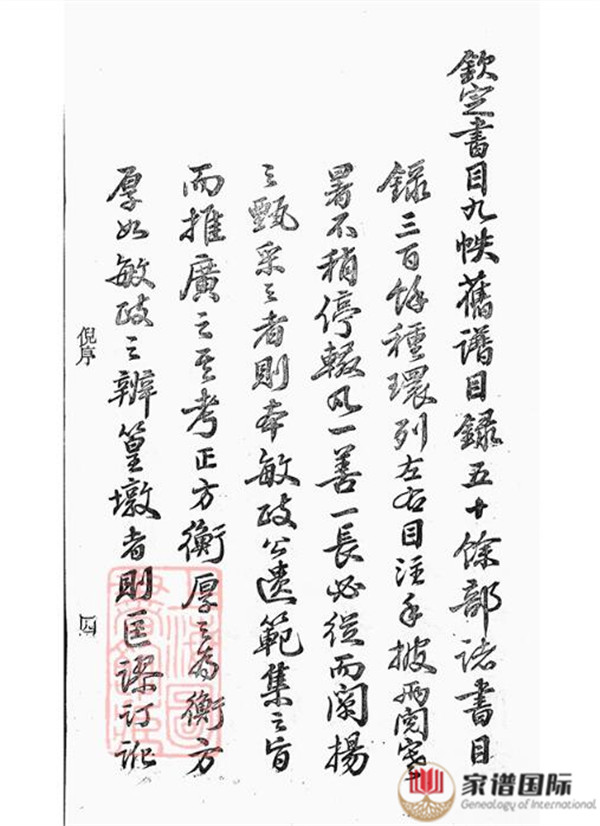 欽定書目九帙舊譜目録五十餘部諸書目
録三百餘種環列左右目注手披兩閱寒
暑不稍停輟凡一善一長必從而闡揚
之甄采之者則本敏政公遺範集之旨
而推廣之其考正方衡厚之為衡方
厚如敏政之辨篁墩者則匡謬訂訛
倪序
四
家谱国际
Genealogy of International